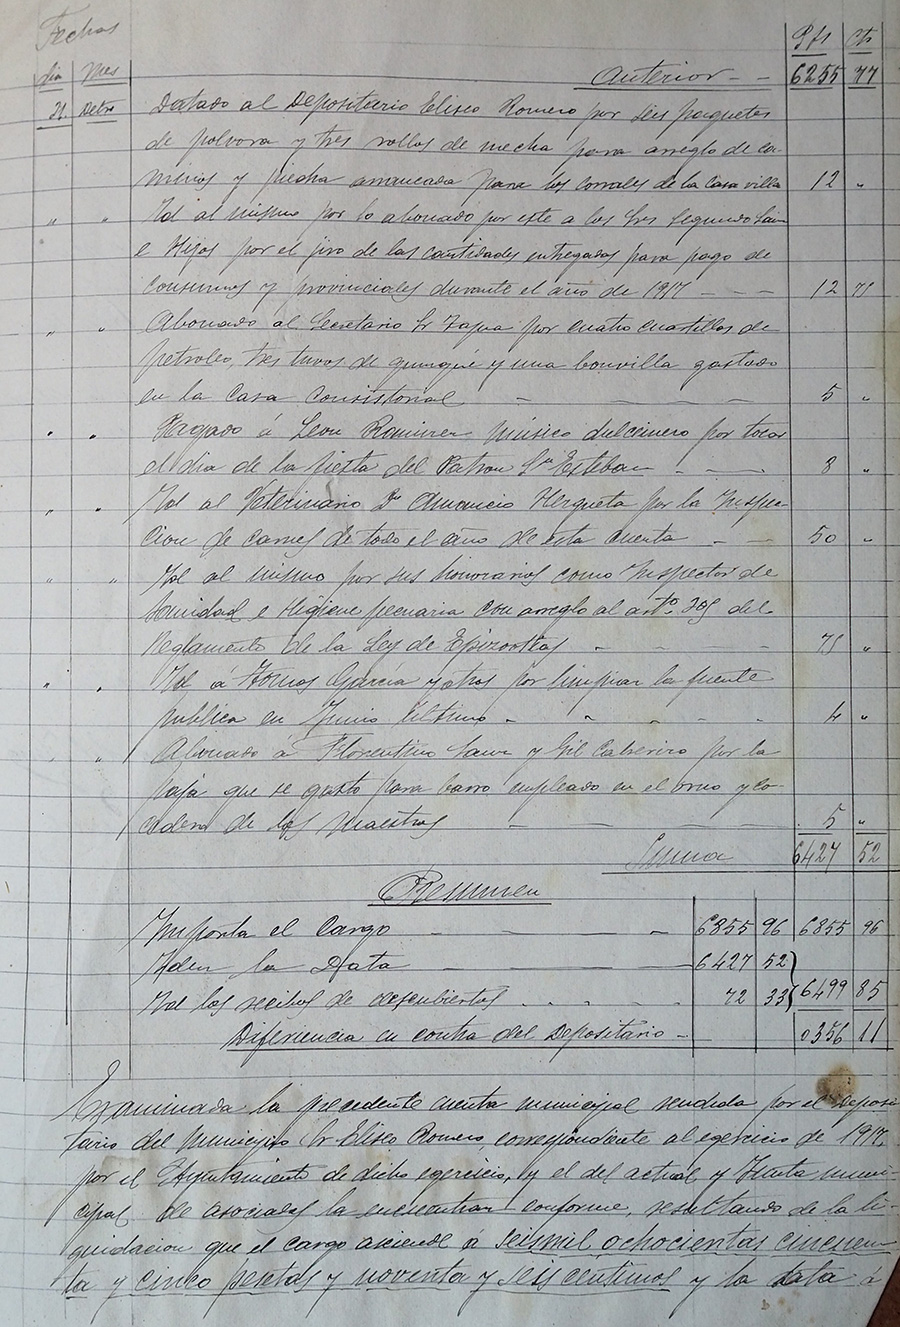 Fechas
Pts Cts
dia Mes Anterior - - 6255 77
31 Dcbre Datado al Depositario Eliseo Romero por seis paquetes
de polvora y tres rollos de mecha para arreglo de ca-
minos y piedra arrancada para los corrales de la casa villa 12 "
" " Id al mismo por lo abonado por este a los Sres Segundo Sainz
e Hijos por el jiro de las cantidades entregadas para pago de
consumos y provinciales durante el año de 1917 - - - 12 75
" " Abonado al Secretario Sr Zapa por cuatro cuartillos de
petroleo, tres tuvos de quinqué y una bonvilla gastado
en la Casa Consistorial - - - - 5 "
" " Pagado á Leon Ramirez músico dulcinero por tocar
el dia de la fiesta del Patron Sn Esteban - - - 8 "
" " Id al Veterinario Dn Amancio Hergueta por la Inspe-
cion de carnes de todo el año de esta cuenta - - 50 "
" " Id al mismo por sus honorarios como Inspector de
Sanidad e Higiene pecuaria con arreglo al arto. 305 del
Reglamento de la Ley de Epizootias - - - - 75 "
" " Id a Tomas García y otros por limpiar la fuente
publica en Junio último - - - - - 4 "
" " Abonado á Florentino Sanz y Gil Cabrerizo por la
paja que se gasto para barro empleado en el orno y co-
cedera de los Maestros - - - - 5 "
Suma 6427 52
Resumen
Importa el Cargo - - - 6855 96 6855 96
Idem la Data - - 6427 52
Id los recibos de descubiertos - - - - 72 33 6499 85
Diferiencia en contra del Depositario - 0356 11
Examinada la precedente cuenta municipal rendida por el Deposi
tario del Municipio Sr Eliseo Romero correspondiente al egercicio de 1917,
por el Ayuntamiento de dicho egercicio, y el del actual y Junta muni-
cipal de asociados la encuentran conforme, resultando de la li-
quidacion que el cargo asciende á seismil ochocientas cincuen-
ta y cinco pesetas y noventa y seis centimos y la data á